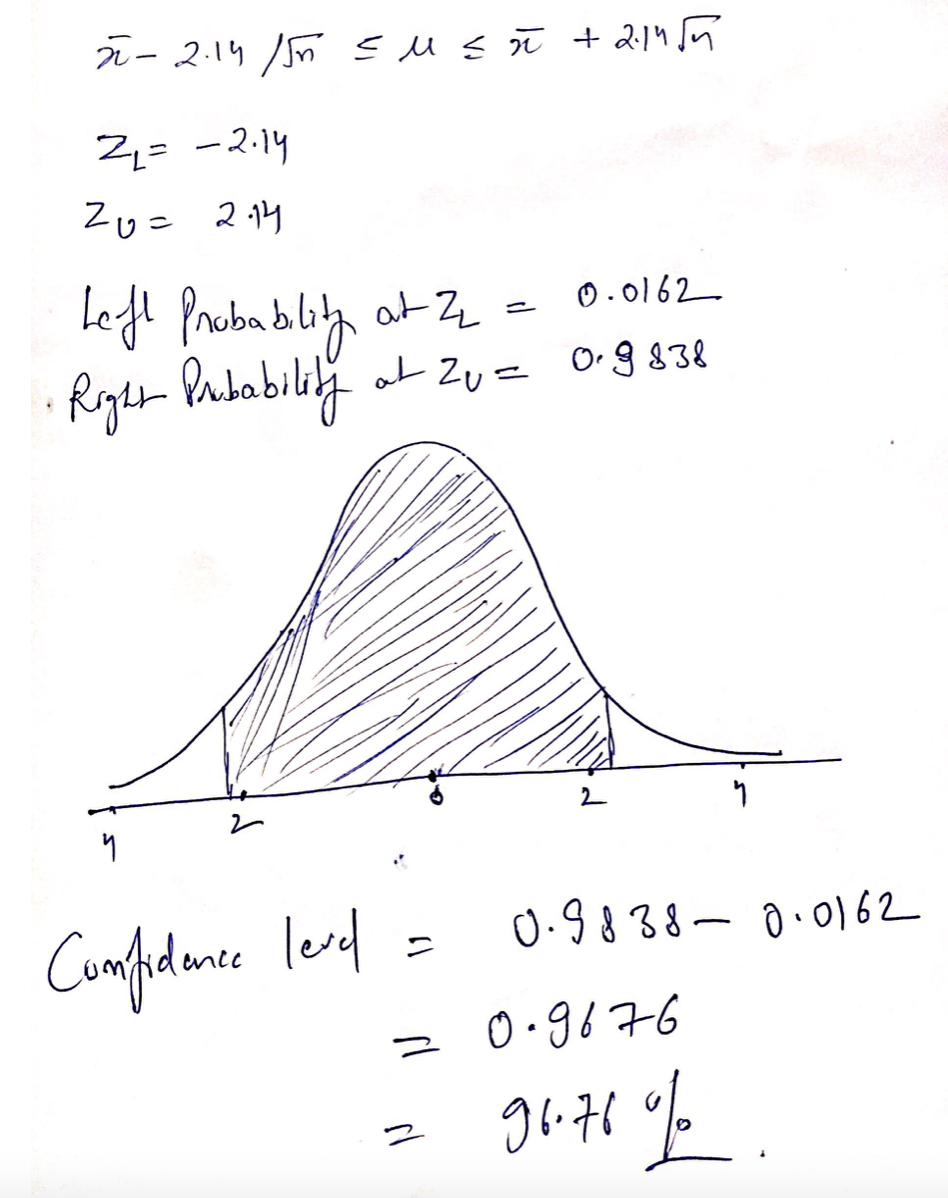 x̄ - 2.14 /√n ≤ μ ≤ x̄ + 2.14 √n
Z_L = - 2.14
Z_U = 2.14
Left Probability at Z_L = 0.0162
Right Probability at Z_U = 0.9838
4 2 0 2 4
Confidence level = 0.9838 - 0.0162
= 0.9676
= 96.76 %.